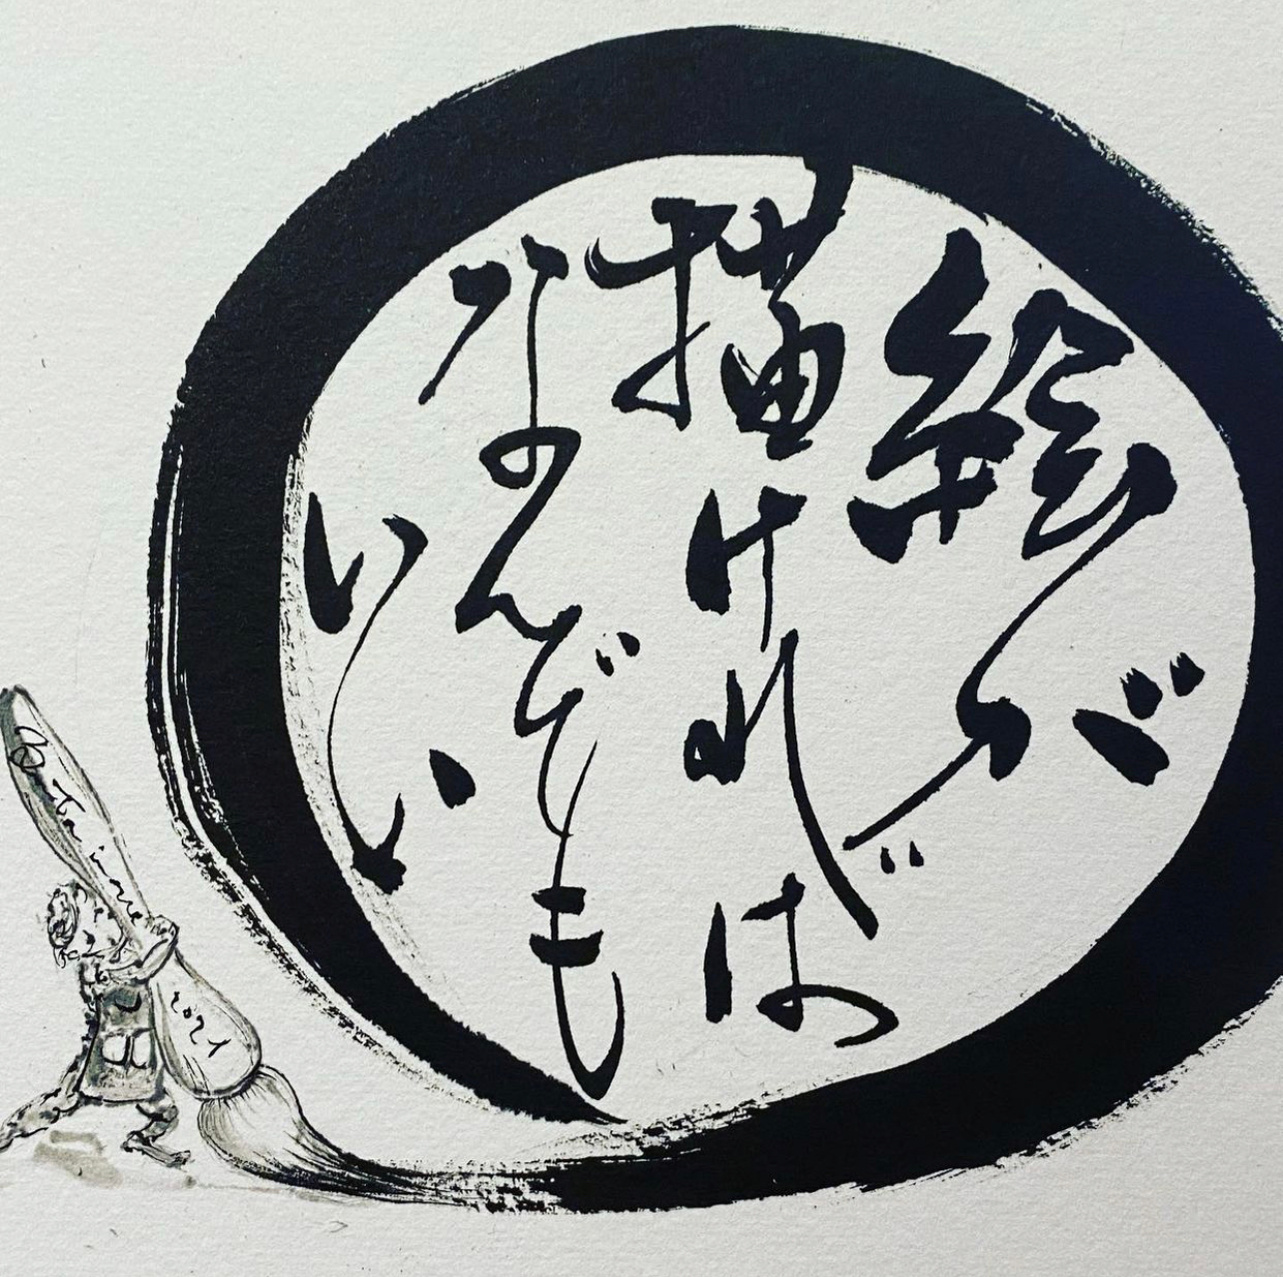 絵が
描ければ
なんでも
いい
2021